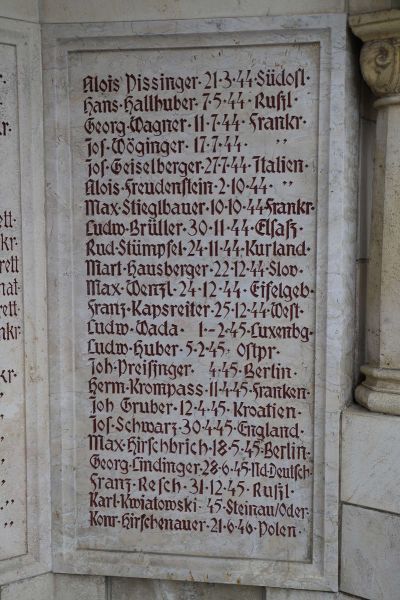 Alois Pissinger · 21 · 3 · 44 · Südosl ·
Hans · Hallhuber · 7 · 5 · 44 · Rußl ·
Georg · Wagner · 11 · 7 · 44 · Frankr ·
Jos · Wöginger · 17 · 7 · 44 · "
Jos · Geiselberger · 27 · 7 · 44 · Italien ·
Alois · Freudenstein · 2 · 10 · 44 · "
Max · Stieglbauer · 10 · 10 · 44 Frankr ·
Ludw · Brüller · 30 · 11 · 44 · Elsaß ·
Rud · Stümpfel · 24 · 11 · 44 · Kurland ·
Mart · Hausberger · 22 · 12 · 44 · Slow ·
Max · Wenzl · 24 · 12 · 44 · Eifelgeb ·
Franz · Kapsreiter · 25 · 12 · 44 · West ·
Ludw · Wada · 1 - 2 · 45 · Luxenbg ·
Ludw · Huber · 5 · 2 · 45 · Ostpr ·
Joh · Preisinger · 4 · 45 · Berlin ·
Herm · Krompass · 11 · 4 · 45 · Franken ·
Joh Gruber · 12 · 4 · 45 · Kroatien ·
Jos · Schwarz · 30 · 4 · 45 · England ·
Max · Hirschbrich · 18 · 5 · 45 · Berlin ·
Georg · Lindinger · 28 · 6 · 45 · Nd · Deutsch
Franz · Resch · 31 · 12 · 45 · Rußl ·
Karl · Kwiatowski · 45 · Steinau/Oder
Konr · Hirschenauer · 21 · 6 · 46 · Polen ·